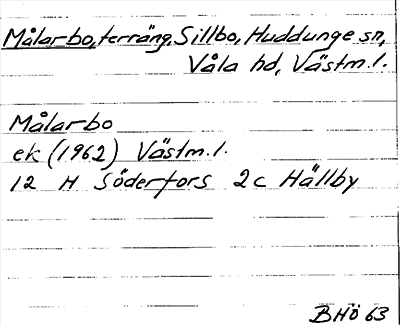 Målar-bo, terräng, Sillbo, Huddunge sn,
Våla hd, Västm.l.
Målar-bo
ek (1962) Västm.l.
12 H Söderfors 2c Hällby
BHÖ 63